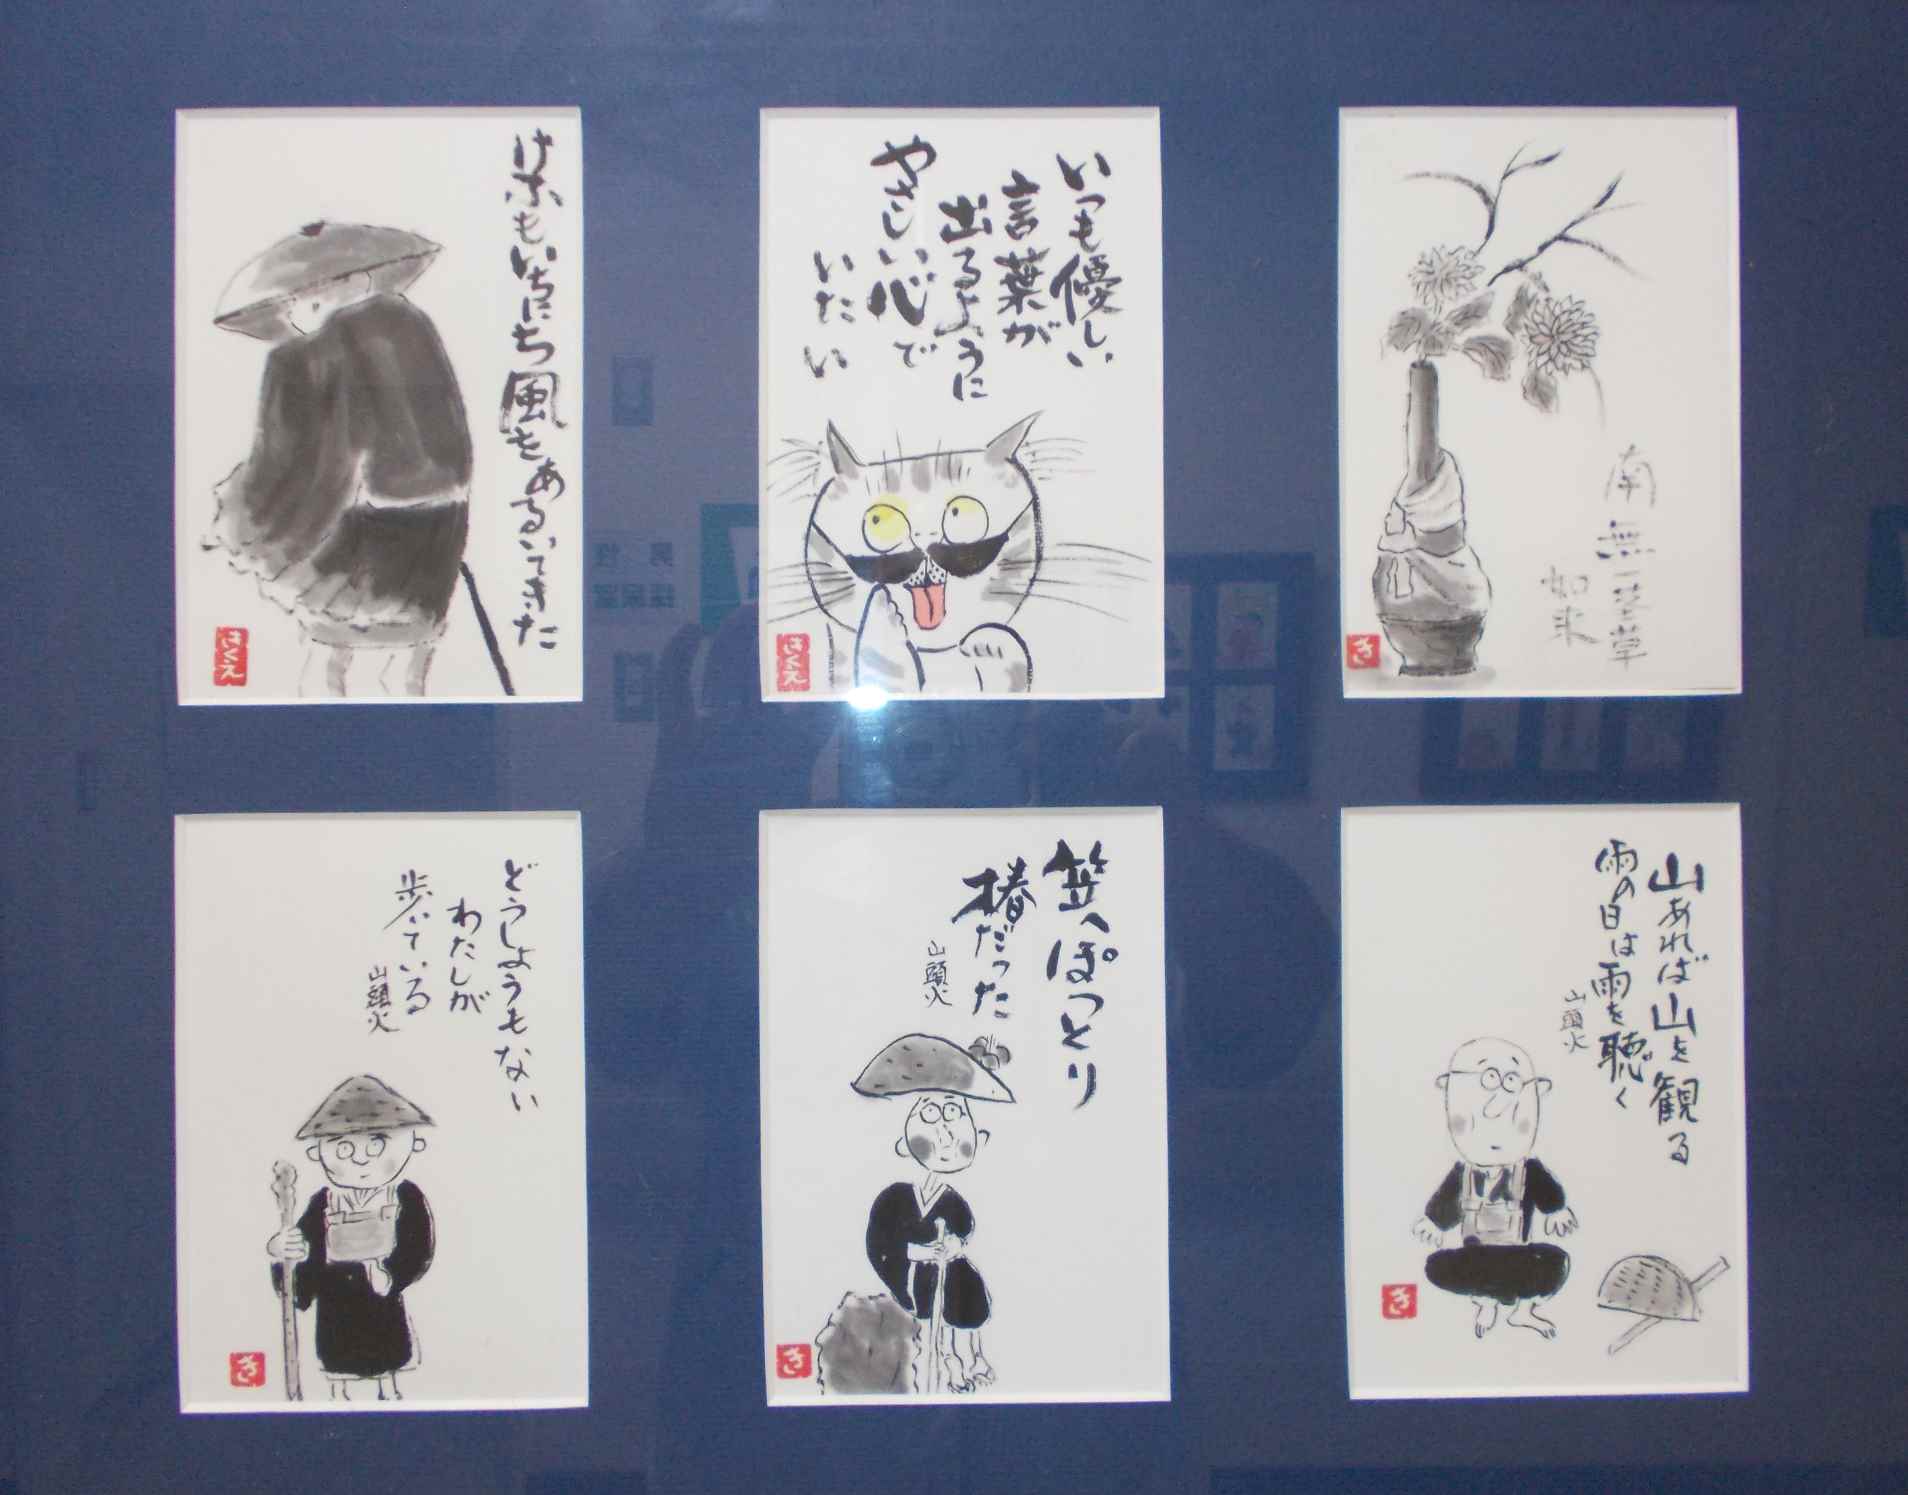 けふもいちにち風をあるいてきた
はくえ
いつも優しい
言葉が
出るように
やさしい心で
いたい
はくえ
南無一茎草
如来
き
どうしようもない
わたしが
歩いている
山頭火
き
笠へぽつとり
椿だった
山頭火
き
山あれば山を観る
雨の日は雨を聴く
山頭火
き